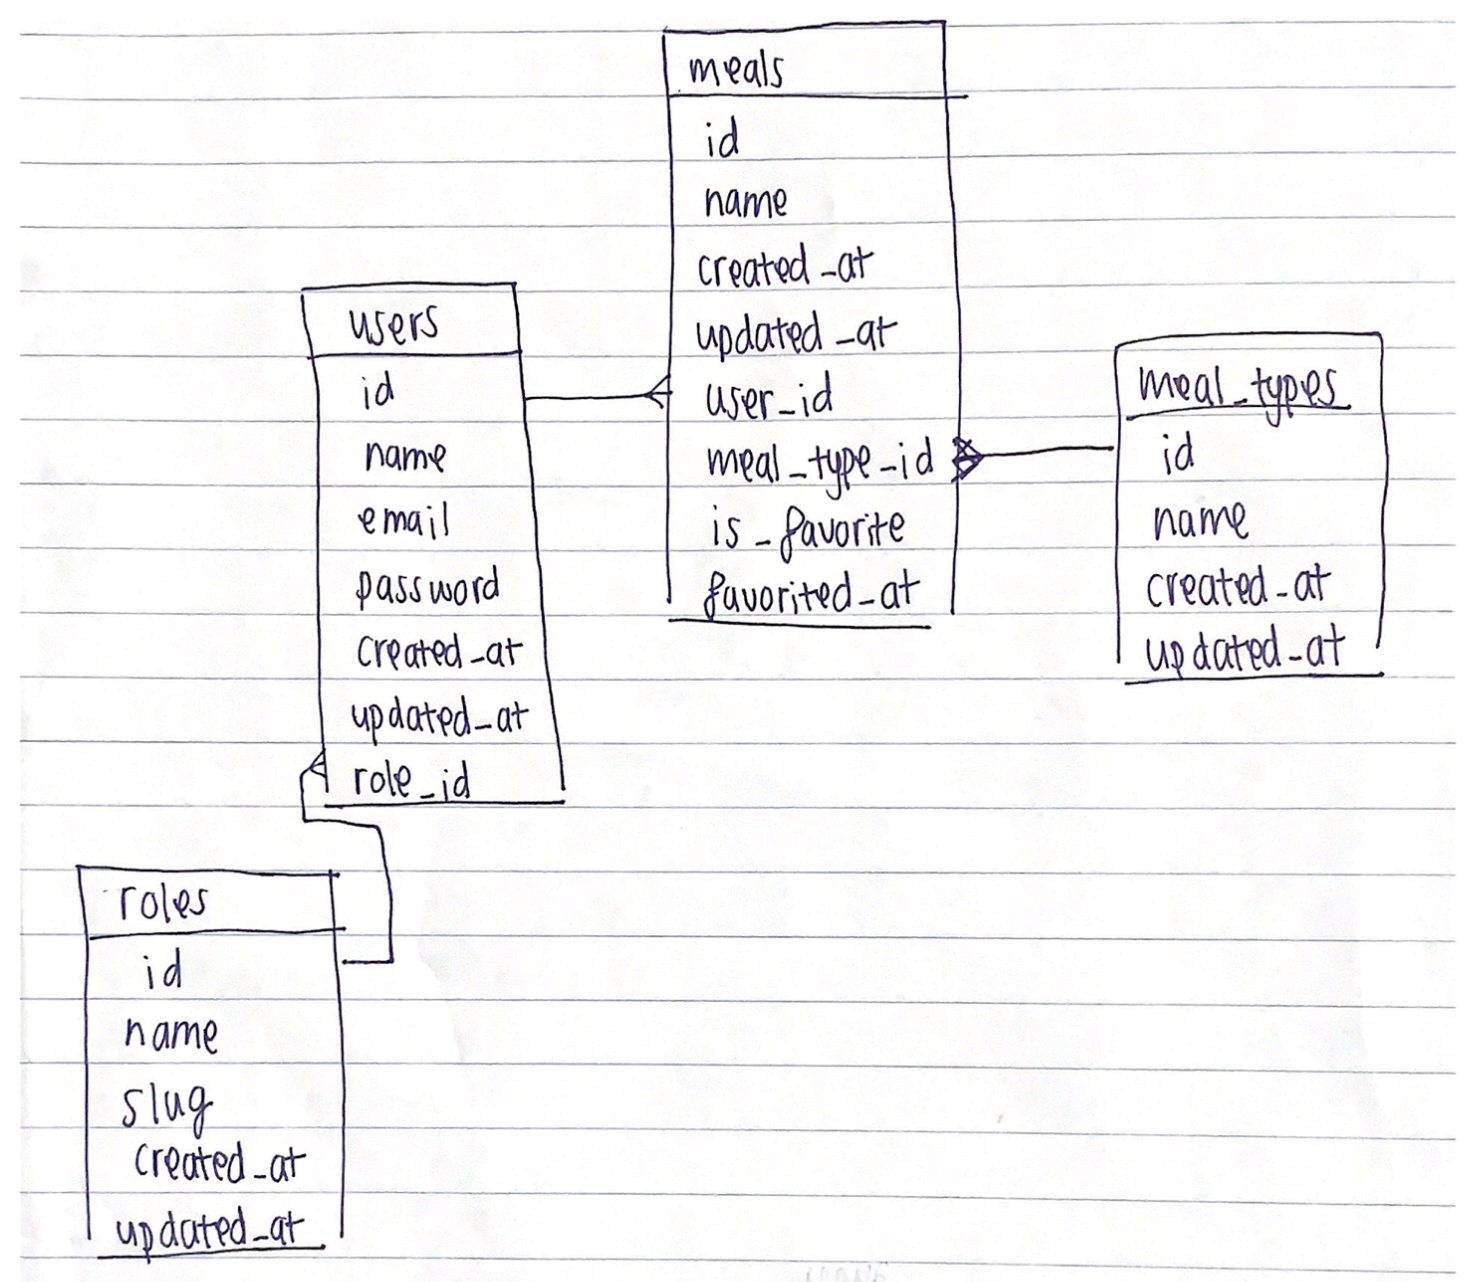 meals
id
name
created_at
updated_at
user_id
meal_type_id
is_favorite
favorited_at
users
id
name
email
password
created_at
updated_at
role_id
meal_types
id
name
created_at
updated_at
roles
id
name
slug
created_at
updated_at